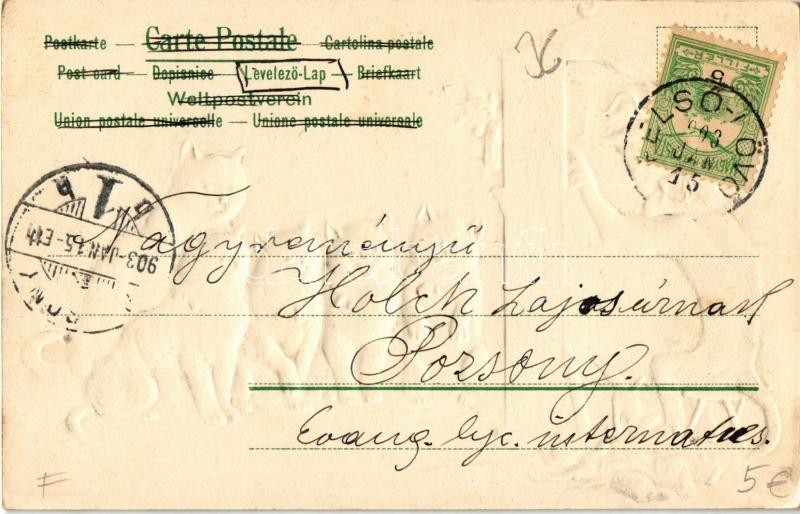 Postkarte — Carte Postale — Cartolina postale
Post card — Dopisnice — Levelező-Lap — Briefkaart
Weltpostverein
Union postale universelle — Unione postale universale
5 FILLÉR
903 JAN 15
903 JAN 15
Nagyreményű
Holck Lajos úrnak
Pozsony.
Evang. lyc. internatus.
F
5€